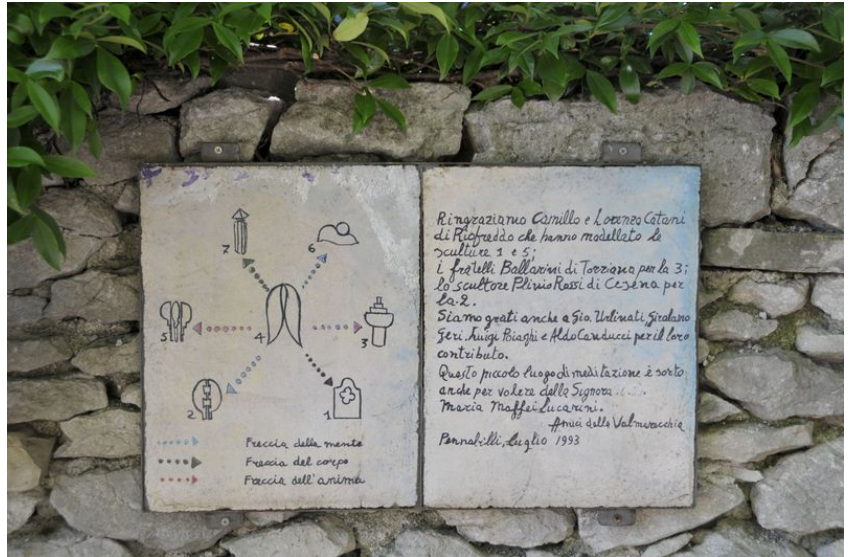 7
6
4
5
3
2
1
Freccia della mente
Freccia del corpo
Freccia dell'anima
Ringraziamo Camillo e Lorenzo Catani
di Riofreddo che hanno modellato le
sculture 1 e 5;
i fratelli Ballarini di Torriana per la 3;
lo scultore Plinio Rossi di Cesena per
la 2.
Siamo grati anche a Gio. Urbinati, Girolamo
Geri, Luigi Biaghi e Aldo Canducci per il loro
contributo.
Questo piccolo luogo di meditazione è sorto
anche per volere della Signora
Maria Maffei Lucarini.
Amici della Valmarecchia
Pennabilli, luglio 1993